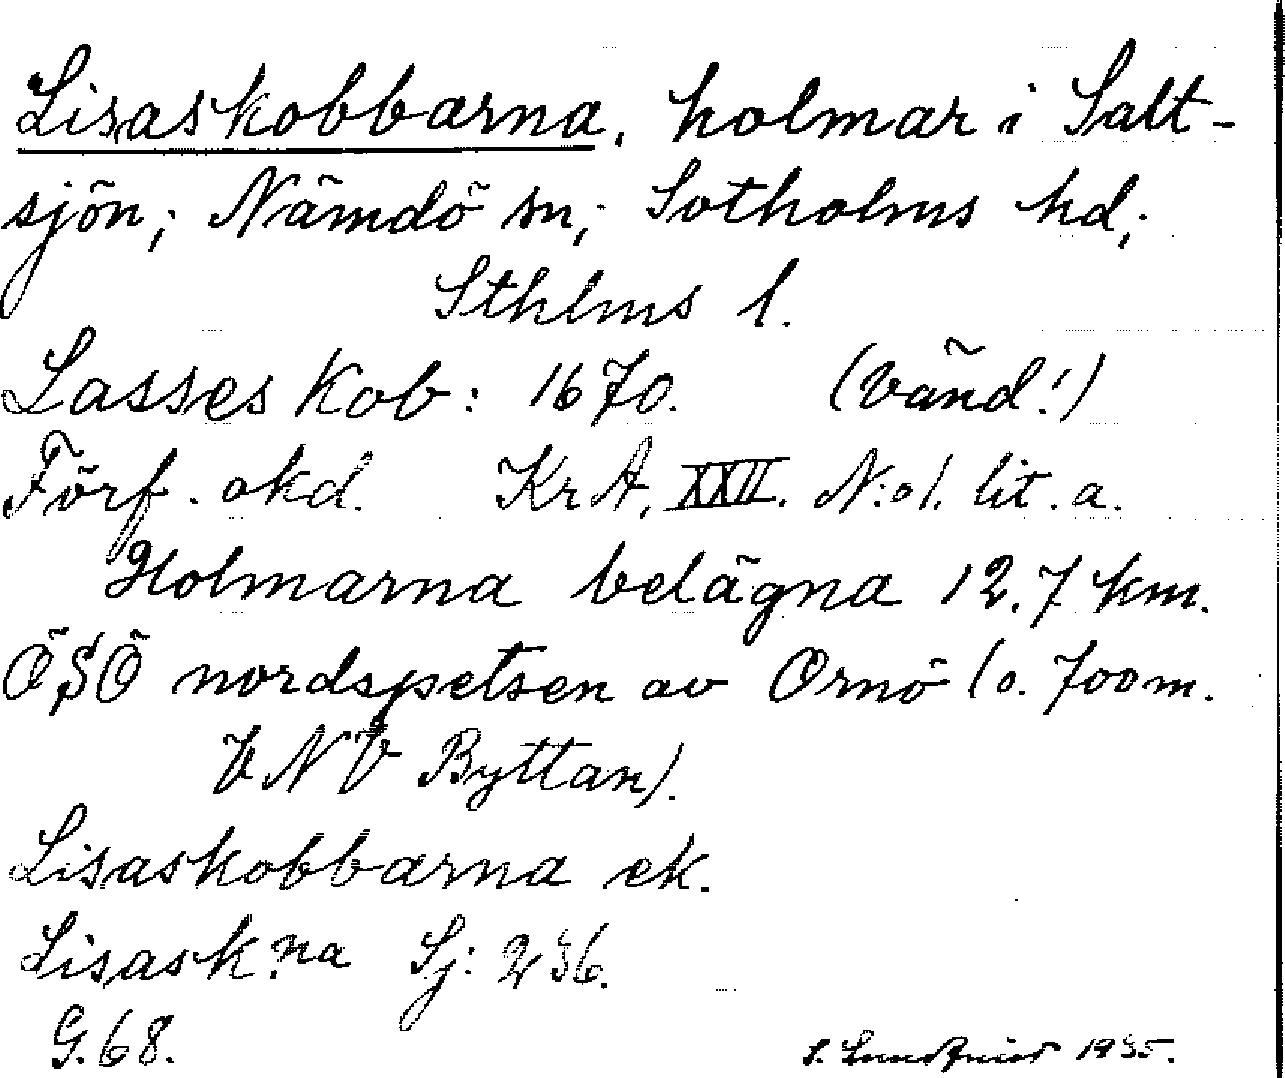 Lisaskobbarna, holmar i Salt-
sjön; Nämdö sn; Sotholms hd;
Sthlms l.
Lasses Kob: 1670. (vänd!)
Förf. okd. KrA, XXII. N:o 1. lit. a.
Holmarna belägna 12.7 km.
ÖSÖ nordspetsen av Ornö (o. 700 m.
VNV Byttan).
Lisaskobbarna ek.
Lisask:na Sj: 236.
G. 68.
1935.